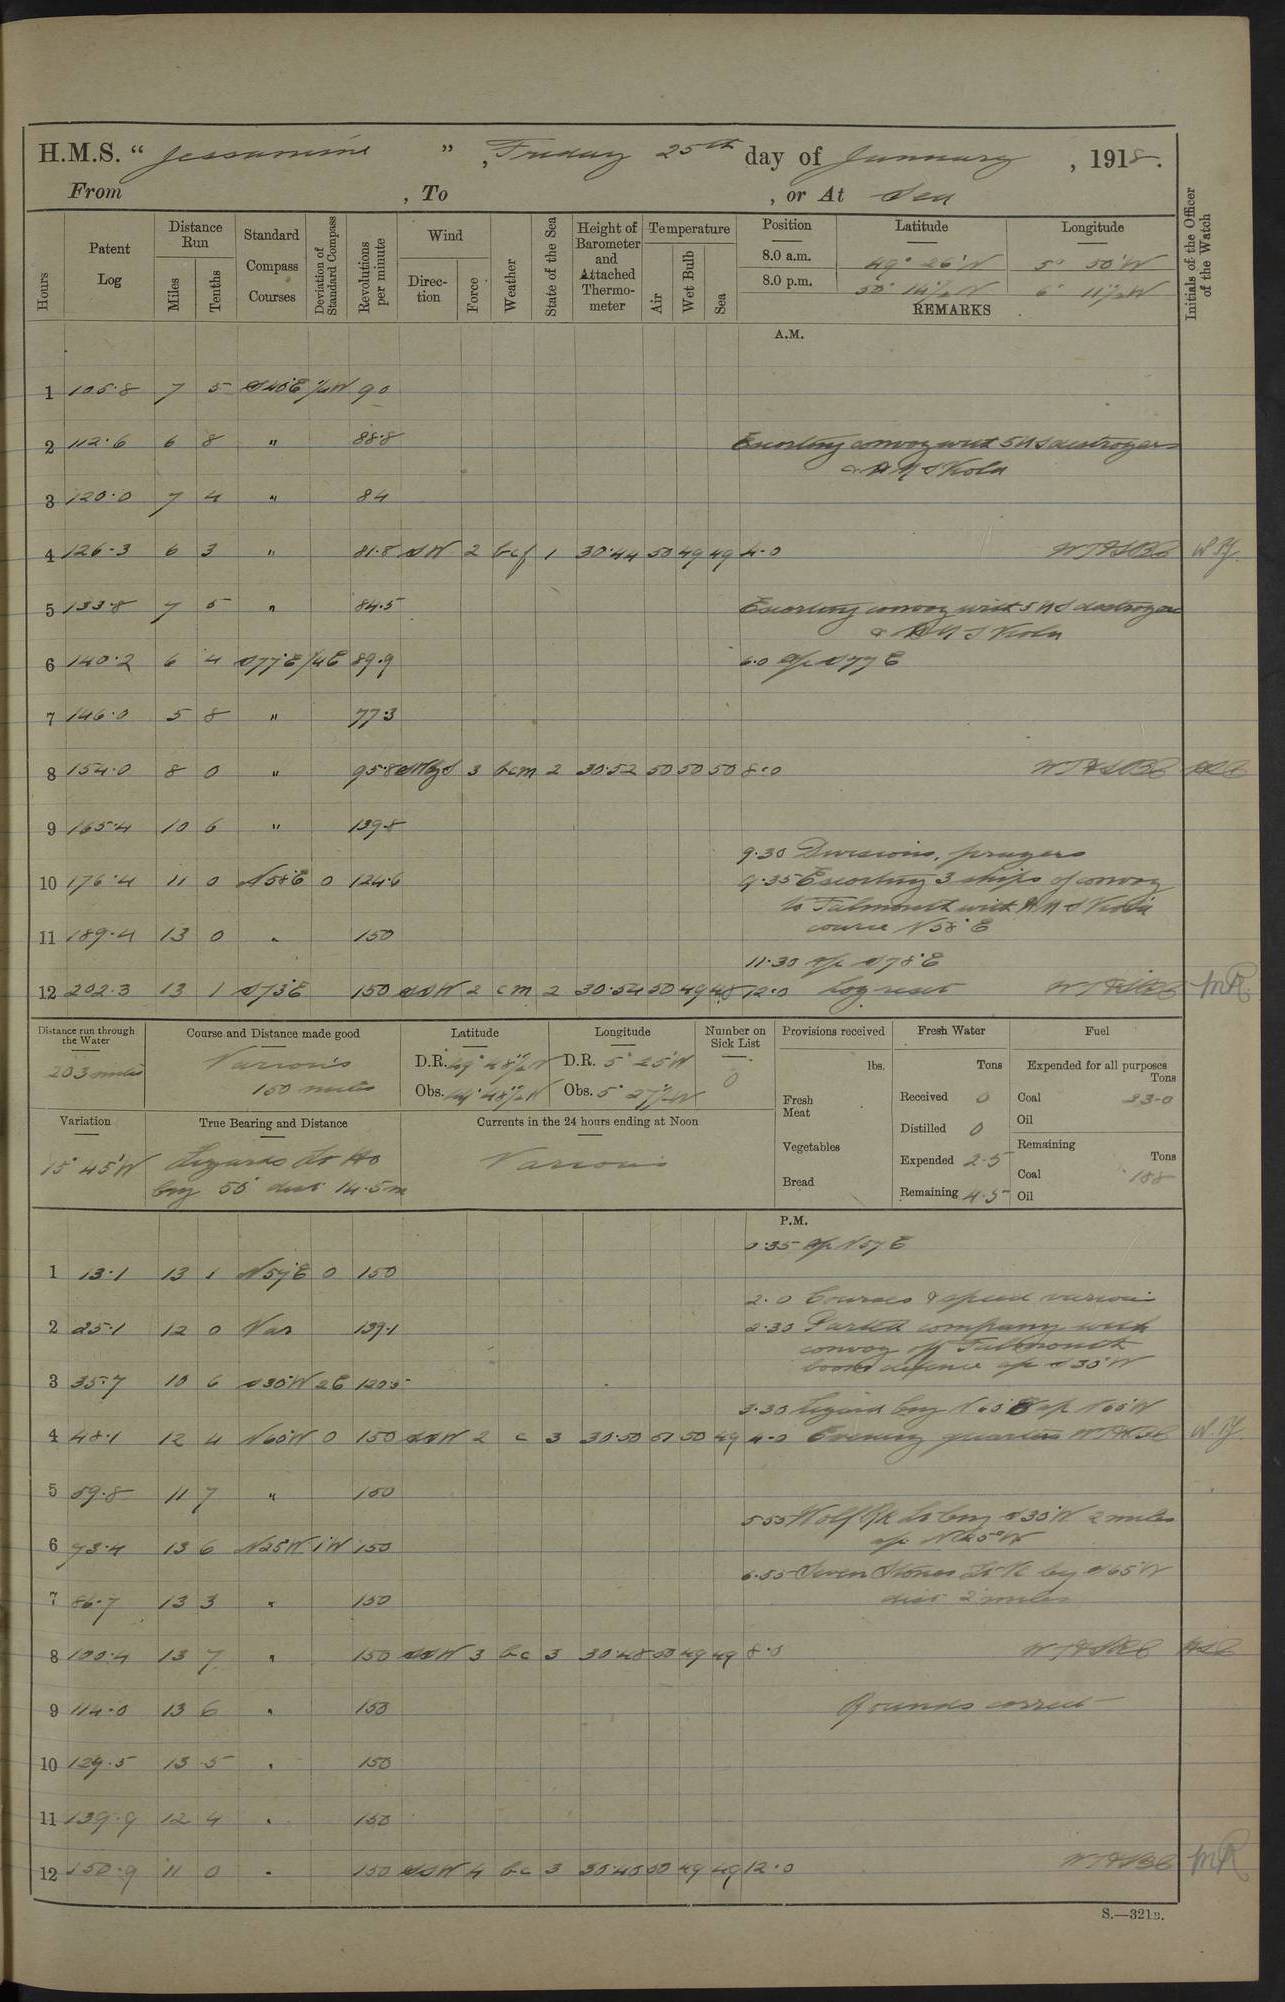 H.M.S. “ Jessamine ” , Friday 25th day of January , 1918.
From , To , or At Sea
Hours
Patent Log
Distance Run
Miles
Tenths
Standard Compass Courses
Deviation of Standard Compass
Revolutions per minute
Wind
Direction
Force
Weather
State of the Sea
Height of Barometer and Attached Thermometer
Temperature
Air
Wet Bulb
Sea
Position Latitude Longitude
8.0 a.m. 49° 26' N 5° 50' W
8.0 p.m. 50° 14½ N 6° 11½ W
REMARKS
Initials of the Officer of the Watch
A.M.
1 105.8 7 5 S40°E ¼W 90
2 112.6 6 8 " 88.8 Escorting convoy with 5 US destroyers
& HMS Viola
3 120.0 7 4 " 84
4 126.3 6 3 " 81.8 SW 2 bcf 1 30.44 50 49 49 4.0
5 133.8 7 5 " 84.5 Escorting convoy with 5 US destroyers
& HMS Viola
6 140.2 6 4 S77°E ¼E 89.9 6.0 a/c S77E
7 146.0 5 8 " 77.3
8 154.0 8 0 " 95.8 SWbyS 3 bcm 2 30.52 50 50 50 8.0
9 165.4 10 6 " 139.8
9.30 Divisions, prayers
10 176.4 11 0 N58°E 0 124.6 9.35 Escorting 3 ships of convoy
to Falmouth with HMS Viola
course N58°E
11 189.4 13 0 " 150
11.30 a/c S78°E
12 202.3 13 1 S73°E 150 SSW 2 cm 2 30.54 50 49 48 12.0 Log reset MR
Distance run through the Water
203 miles
Course and Distance made good
Various
150 miles
Latitude
D.R. 49° 48½ N
Obs. 49° 48½ N
Longitude
D.R. 5° 25' W
Obs. 5° 27½ W
Number on Sick List
0
Provisions received
lbs.
Fresh Meat
Vegetables
Bread
Fresh Water
Tons
Received 0
Distilled 0
Expended 2.5
Remaining 45
Fuel
Expended for all purposes
Tons
Coal 23.0
Oil
Remaining
Tons
Coal 188
Oil
Variation
15° 45' W
True Bearing and Distance
Lizard Lt Ho
brg 50° dist 14.5m
Currents in the 24 hours ending at Noon
Various
P.M.
0.35 a/c N57E
1 13.1 13 1 N57°E 0 150
2.0 Courses & speed various
2 25.1 12 0 Var 139.1 2.30 Parted company with
convoy off Falmouth
boom defence a/c S30°W
3 35.7 10 6 S30°W 2E 120.5
3.30 Lizard brg N60°E a/c N60°W
4 48.1 12 4 N60°W 0 150 SSW 2 c 3 30.50 51 50 49 4.0 Evening quarters
5 59.8 11 7 " 150
5.55 Wolf Rk Lt brg S30°W 2 miles
6 73.4 13 6 N25°W 1W 150 a/c N25°W
6.55 Seven Stones Lt V brg S65°W
7 86.7 13 3 " 150 dist 2 miles
8 100.4 13 7 " 150 SSW 3 bc 3 30.48 50 49 49 8.0
9 114.0 13 6 " 150 Rounds correct
10 129.5 13 5 " 150
11 139.9 12 4 " 150
12 150.9 11 0 " 150 SSW 4 bc 3 30.40 50 49 49 12.0 MR
S.—321B.